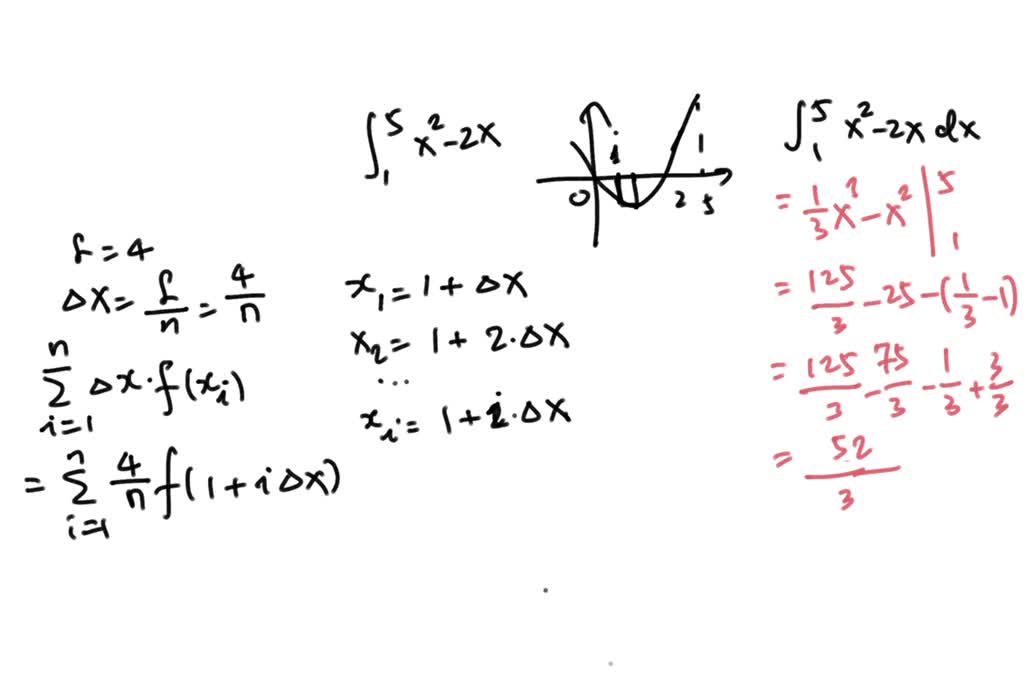 ∫₁⁵ x² - 2x
i
0 2 5
1
∫₁⁵ x² - 2x dx
= 1/3 x³ - x² |₁⁵
= 125/3 - 25 - (1/3 - 1)
= 125/3 - 75/3 - 1/3 + 3/3
= 52/3
L = 4
Δx = L/n = 4/n
n Σ i=1 Δx · f(xᵢ)
= n Σ i=1 4/n f(1 + i Δx)
x₁ = 1 + Δx
x₂ = 1 + 2 · Δx
...
xᵢ = 1 + i · Δx